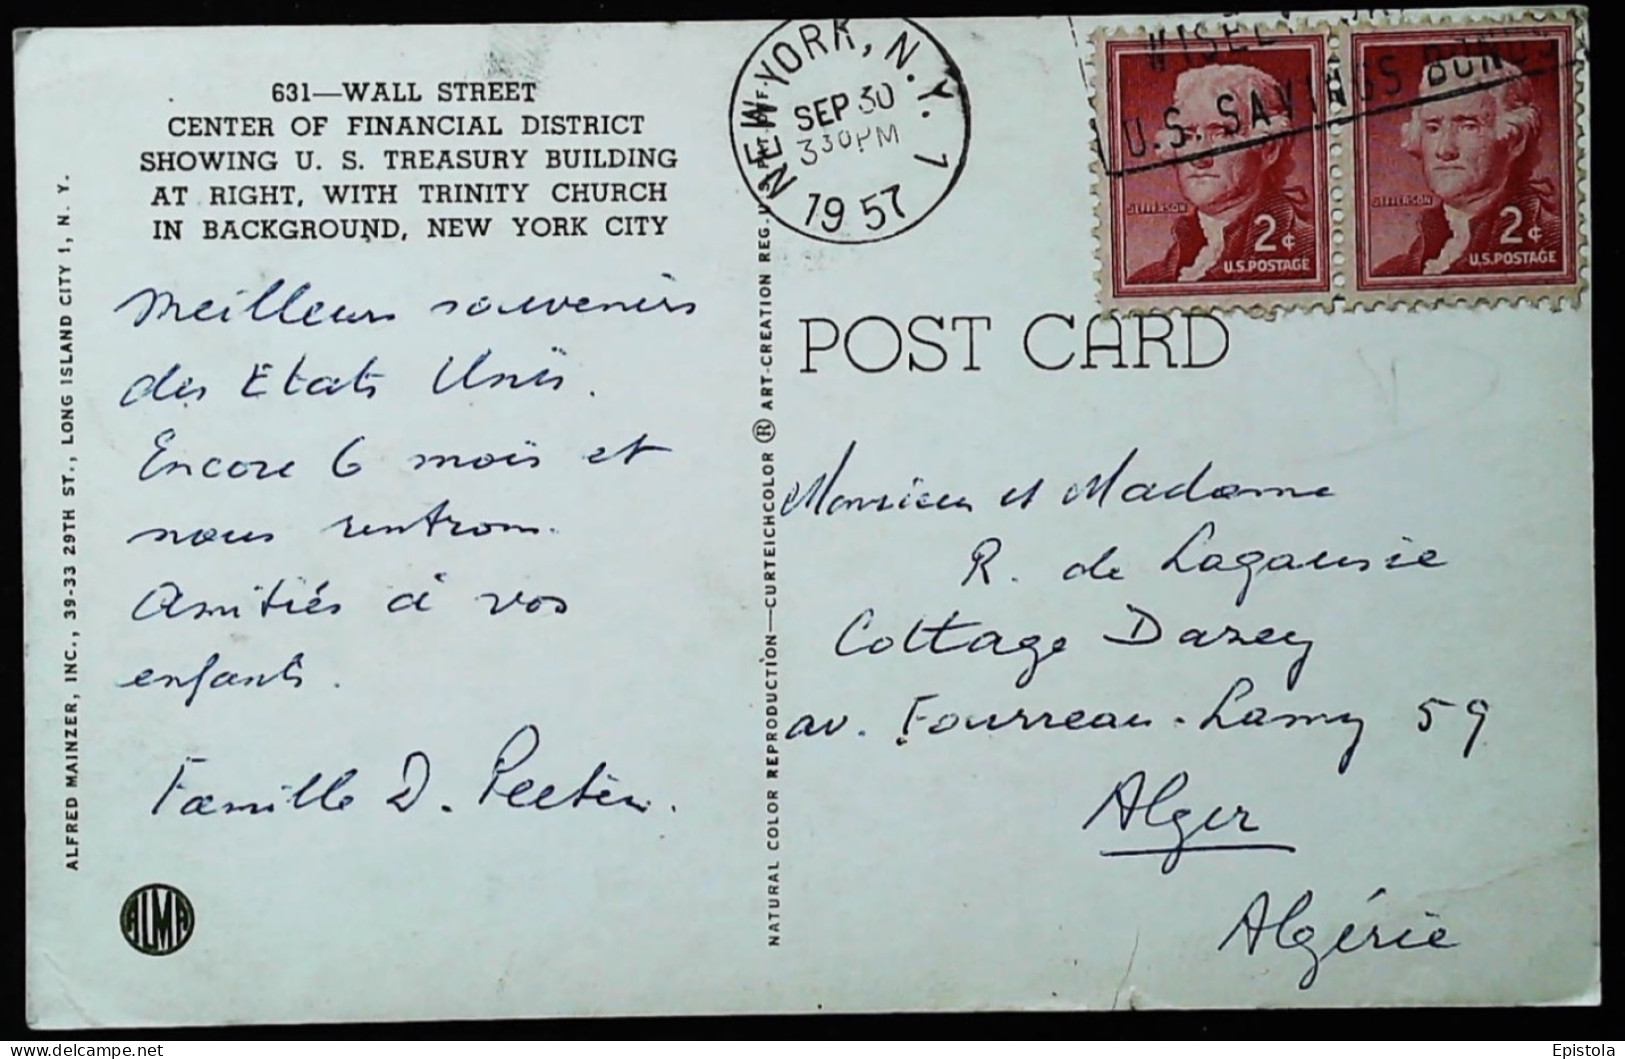 631—WALL STREET
CENTER OF FINANCIAL DISTRICT
SHOWING U. S. TREASURY BUILDING
AT RIGHT, WITH TRINITY CHURCH
IN BACKGROUND, NEW YORK CITY
Meilleurs souvenirs
des Etats Unis.
Encore 6 mois et
nous rentrons.
Amitiés à vos
enfants.
Famille D.
ALMA
ALFRED MAINZER, INC., 39-33 29TH ST., LONG ISLAND CITY 1, N. Y.
NATURAL COLOR REPRODUCTION—CURTEICHCOLOR ® ART-CREATION REG. U.S. PAT. OFF.
NEW YORK, N.Y. 1
SEP 30
330PM
1957
U.S. SAVINGS BONDS
JEFFERSON
2¢
U.S. POSTAGE
JEFFERSON
2¢
U.S. POSTAGE
POST CARD
Monsieur et Madame
R. de Lagausie
Cottage Darey
av. Fourreau-Lamy 59
Alger
Algérie
Epistola